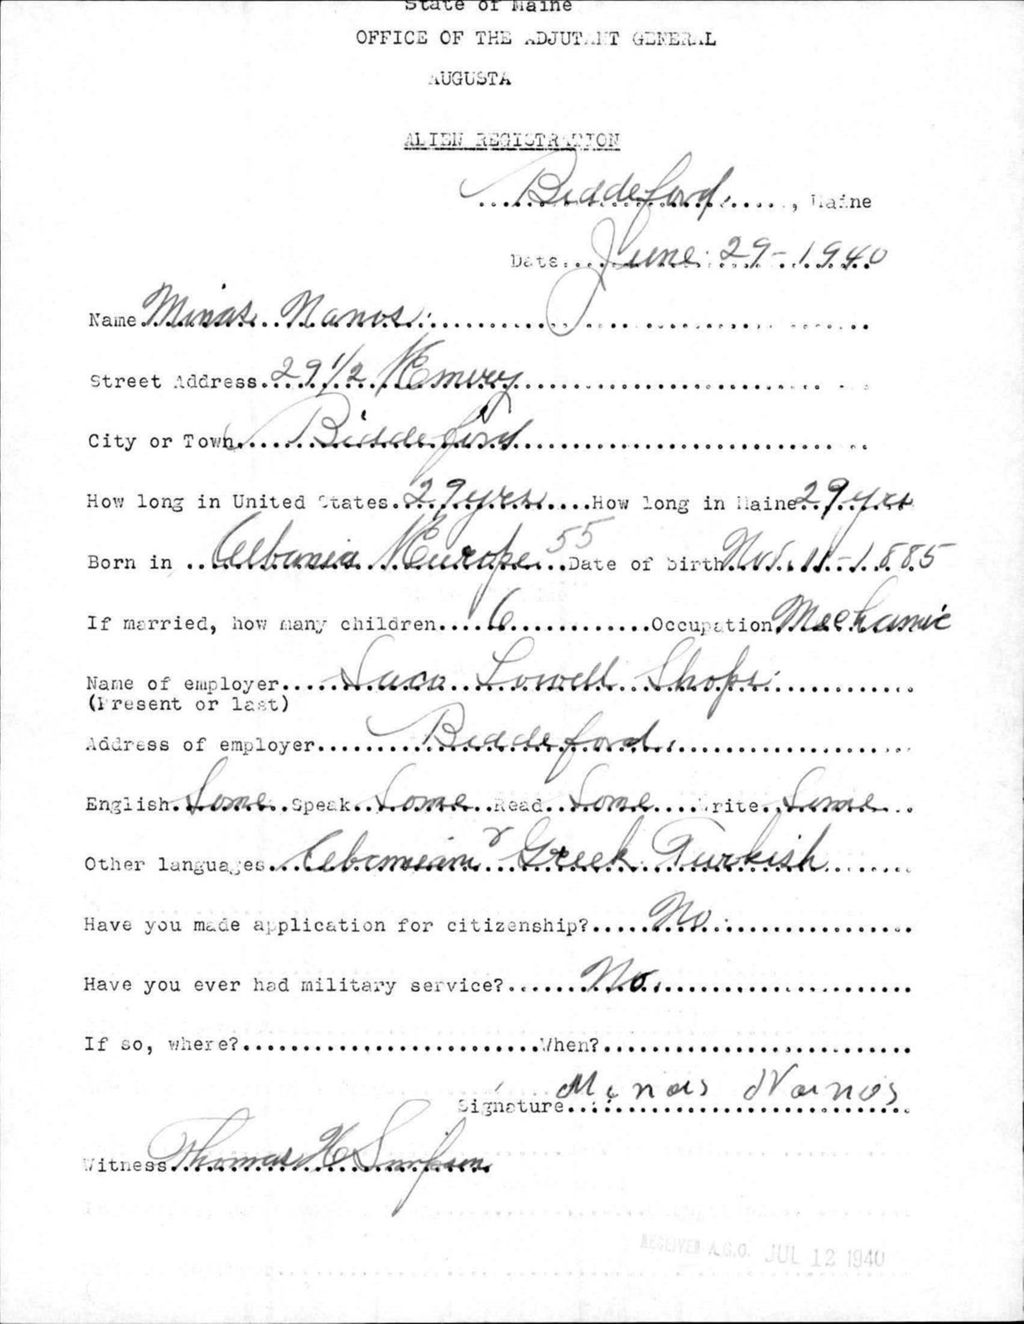 State of Maine
OFFICE OF THE ADJUTANT GENERAL
AUGUSTA
ALIEN REGISTRATION
Biddeford, Maine
Date June 29-1940
Name Minas Nanos
Street Address 29 1/2 Emery
City or Town Biddeford
How long in United States 29 yrs How long in Maine 29 yrs
Born in Albania Europe 55 Date of birth Nov. 11-1885
If married, how many children 6 Occupation Mechanic
Name of employer Saco Lowell Shops
(Present or last)
Address of employer Biddeford
English Some Speak Some Read Some Write Some
Other languages Albanian & Greek Turkish
Have you made application for citizenship? No
Have you ever had military service? No
If so, where? When?
Signature Minas Nanos
Witness Thomas H Simpson
RECEIVED A.G.O. JUL 12 1940